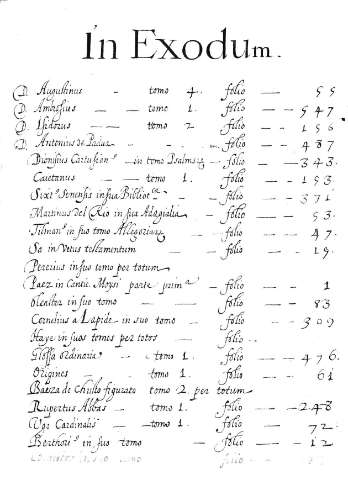 In Exodum.
D. Augustinus - tomo 4. folio — 55
D. Ambrosius — — tomo 1. folio — — 547
D. Isidorus — tomo 2 folio — — 156
D. Antonius de Padua — folio — — 487
Dionisius Cartusian⁹ — in tomo Psalmor̃ — folio — — 343.
Caietanus — tomo 1. folio — — 193.
Sixt⁹ Senensis in sua Biblioteca — folio — — 371
Martinus del Rio in sua Adagialia — folio — — 53.
Tilman⁹ in suo tomo Allegoriarum — folio — — 47.
Sa in Vetus testamentum — folio — — 19.
Pererius in suo tomo per totum
Paez in Cantic Moysi parte prima — folio — — 1
Oleaster in suo tomo — folio — — 83
Cornelius a Lapide in suo tomo — folio — — 309
Haye in suos tomos per totos — folio -
Glossa ordinaria — tomo 1. — folio — — 476.
Origines — tomo 1. — folio — — 61
Baeza de Christo figurato tomo 2 per totum
Rupertus Abbas — tomo 1. folio — — 248
Ugo Cardinalis — tomo 1. folio — — 72.
Berthori⁹ in suo tomo — folio — — 12